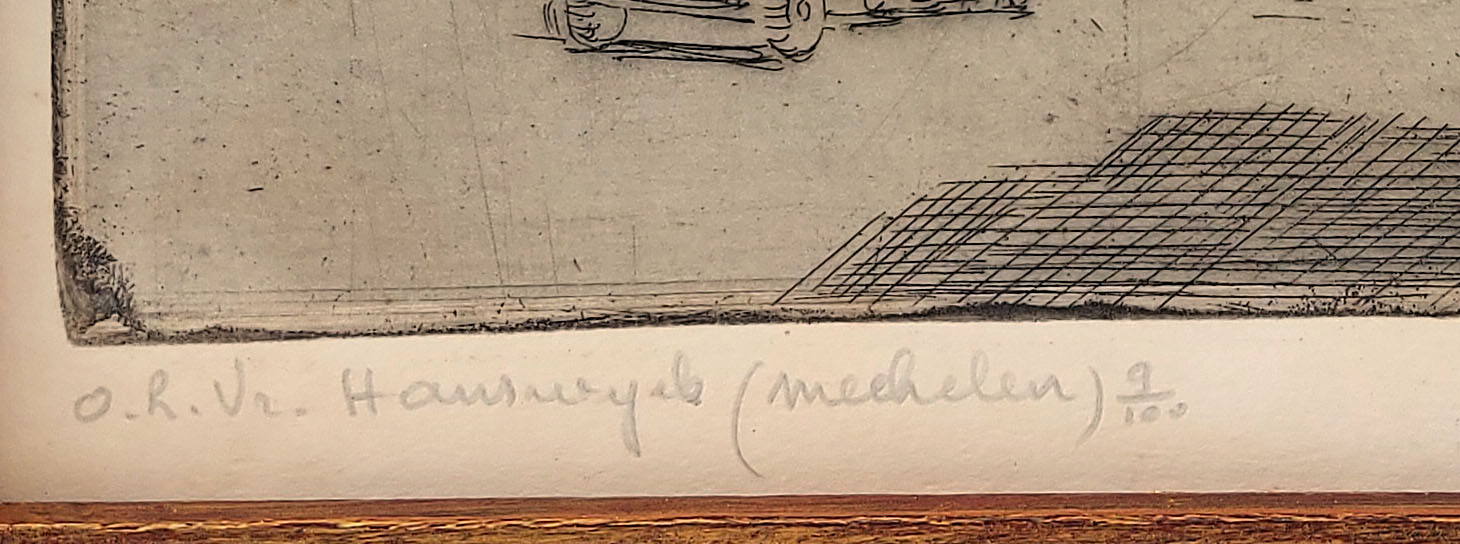 O.L.Vr. Hanswyck (Mechelen) 9/100